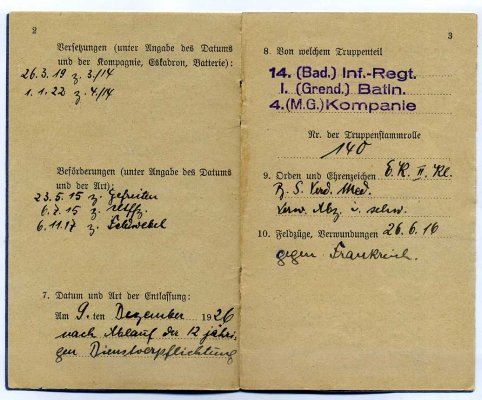 2
Versetzungen (unter Angabe des Datums
und der Kompagnie, Eskadron, Batterie):
26.3.19 z. 3./14
1.1.22 z. 4./14
Beförderungen (unter Angabe des Datums
und der Art):
23.5.15 z. Gefreiten
6.7.15 z. Uffz.
6.11.17 z. Feldwebel
7. Datum und Art der Entlassung:
Am 9.ten Dezember 1926
nach Ablauf der 12 jähri,
gen Dienstverpflichtung
3
8. Von welchem Truppenteil
14. (Bad.) Inf.-Regt.
I. (Grend.) Batln.
4.(M.G.) Kompanie
Nr. der Truppenstammrolle
140
9. Orden und Ehrenzeichen E.K. II. Kl.
B. S. Verd. Med.
Verw. Abz. i. schw.
10. Feldzüge, Verwundungen 26.6.16
gegen Frankreich.